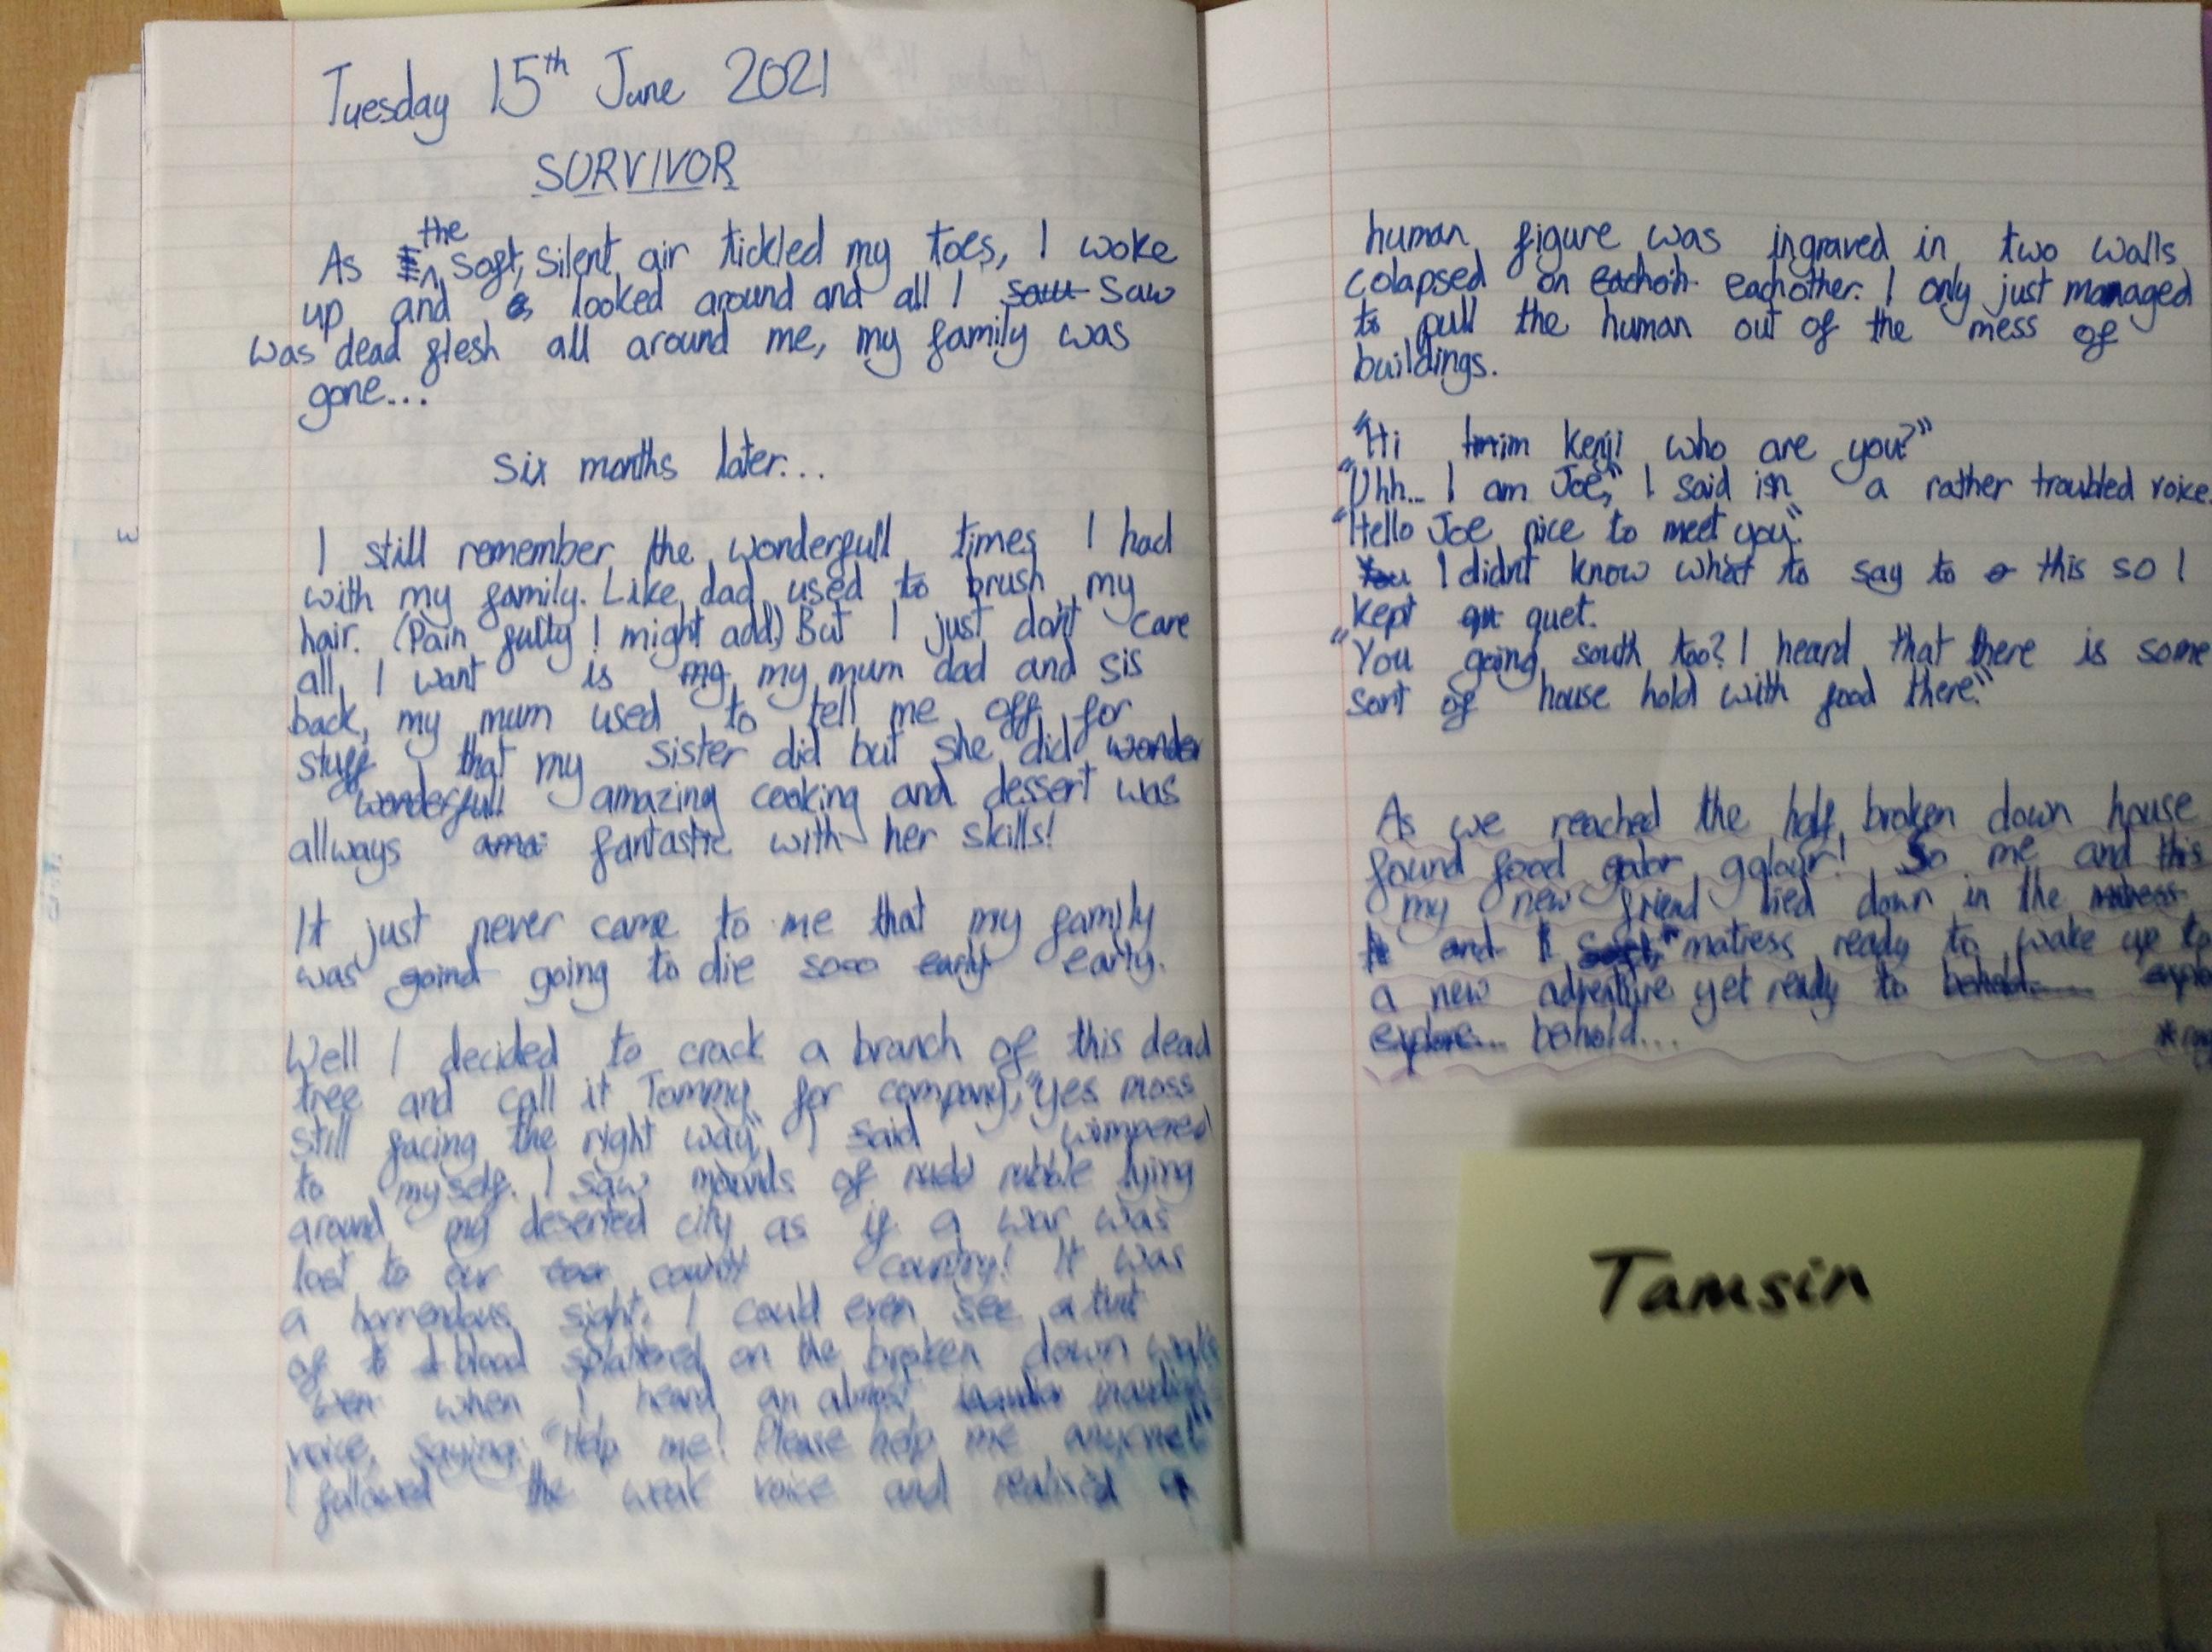 Tuesday 15th June 2021
SURVIVOR
the
As soft, silent air tickled my toes, I woke
up and looked around and all I saw saw
was dead flesh all around me, my family was
gone...
six months later...
I still remember the wonderfull times I had
with my family. Like dad used to brush my
hair. (Pain fully I might add) But I just don't care
all I want is my my mum dad and sis
back, my mum used to tell me off for
stuff that my sister did but she did wonder
wonderfull amazing cooking and dessert was
allways ama fantastic with her skills!
It just never came to me that my family
was goind going to die sooo early early.
Well I decided to crack a branch of this dead
tree and call it Tommy for company, "yes moss
still facing the right way" I said wimpered
to myself. I saw mounds of rubble lying
around my deserted city as if a war was
lost to our country! It was
a horrendous sight. I could even see a tint
of blood splattered on the broken down walls
when I heard an almost
voice, saying: "Help me! Please help me anyone!"
I followed the weak voice and realised a
human figure was ingraved in two walls
colapsed on eachoth eachother. I only just managed
to pull the human out of the mess of
buildings.
"Hi im Kenji who are you?"
"Uhh... I am Joe," I said in a rather troubled voice.
"Hello Joe nice to meet you."
You I didn't know what to say to this so I
kept quet.
"You going south too? I heard that there is some
sort of house hold with food there."
As we reached the half broken down house
found food galor galour! So me and this
my new friend lied down in the matress
and I matress ready to wake up to
a new adventure yet ready to behold...
explore... behold...
Tamsin